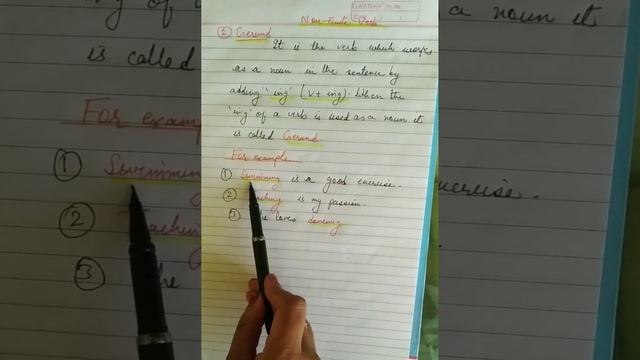 Non-Finite Verb
② Gerund
It is the verb which works
as a noun in the sentence by
adding 'ing' (V + ing). When the
'ing' of a verb is used as a noun it
is called Gerund
For example
① Swimming is a good exercise.
② is my passion.
③ loves dancing